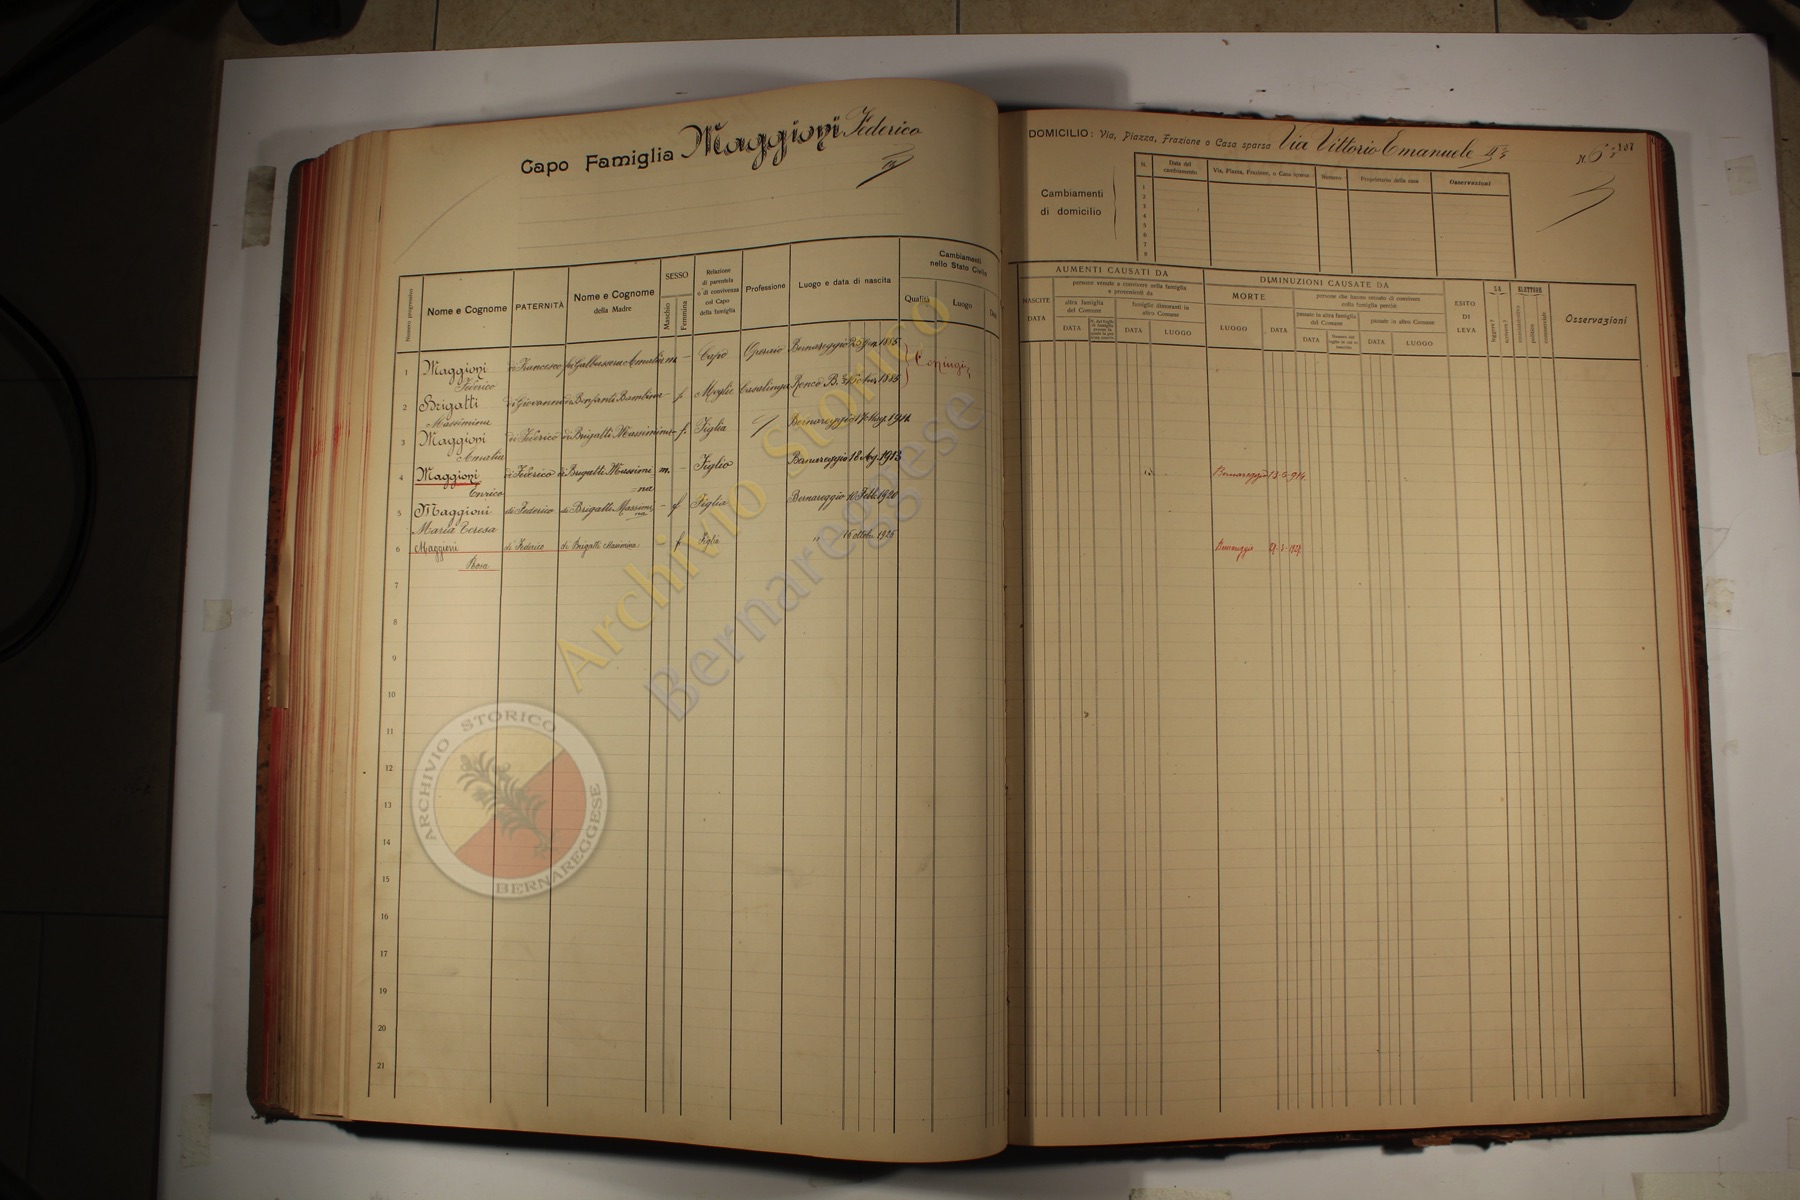 Capo Famiglia Maggioni Federico
DOMICILIO: Via, Piazza, Frazione o Casa sparsa Via Vittorio Emanuele II°
N. 6
Cambiamenti
di domicilio
N.
Data del cambiamento
Via, Piazza, Frazione, o Casa sparsa
Numero
Proprietario della casa
Osservazioni
1
2
3
4
5
6
7
8
Numero progressivo
Nome e Cognome
PATERNITÀ
Nome e Cognome
della Madre
SESSO
Maschio
Femmina
Relazione
di parentela
o di convivenza
col Capo
della famiglia
Professione
Luogo e data di nascita
Cambiamenti
nello Stato Civile
Qualità
Luogo
NASCITE
DATA
AUMENTI CAUSATI DA
persone venute a convivere nella famiglia
e provenienti da
altra famiglia
del Comune
famiglie dimoranti in
altro Comune
DATA
DATA
LUOGO
DIMINUZIONI CAUSATE DA
MORTE
LUOGO
DATA
persone che hanno cessato di convivere
colla famiglia perchè
passate in altra famiglia
del Comune
passate in altro Comune
DATA
DATA
LUOGO
ESITO
DI
LEVA
SA
leggere?
scrivere?
ELETTORE
amministrativo
politico
commerciale
Osservazioni
1 Maggioni Federico di Francesco fu Galbussera Amalia m. – Capo Operaio Bernareggio 1885
Coniugi
2 Brigatti Massimina di Giovanni di Bonfanti Bambina – f. Moglie Casalinga Ronco B. 1885
3 Maggioni Amalia di Federico di Brigatti Massimina – f. Figlia Bernareggio 17 Mag. 1911
4 Maggioni Enrico di Federico di Brigatti Massimina m. – Figlio Bernareggio 18 Ag. 1913 Bernareggio 13-6-914
5 Maggioni Maria Teresa di Federico di Brigatti Massimina – f Figlia Bernareggio 10 Febb. 1920
6 Maggioni Rosa di Federico di Brigatti Massimina f Figlia " 16 ottobre 1926 Bernareggio
7
8
9
10
11
12
13
14
15
16
17
19
20
21
Archivio Storico
Bernareggese
ARCHIVIO STORICO
BERNAREGGESE